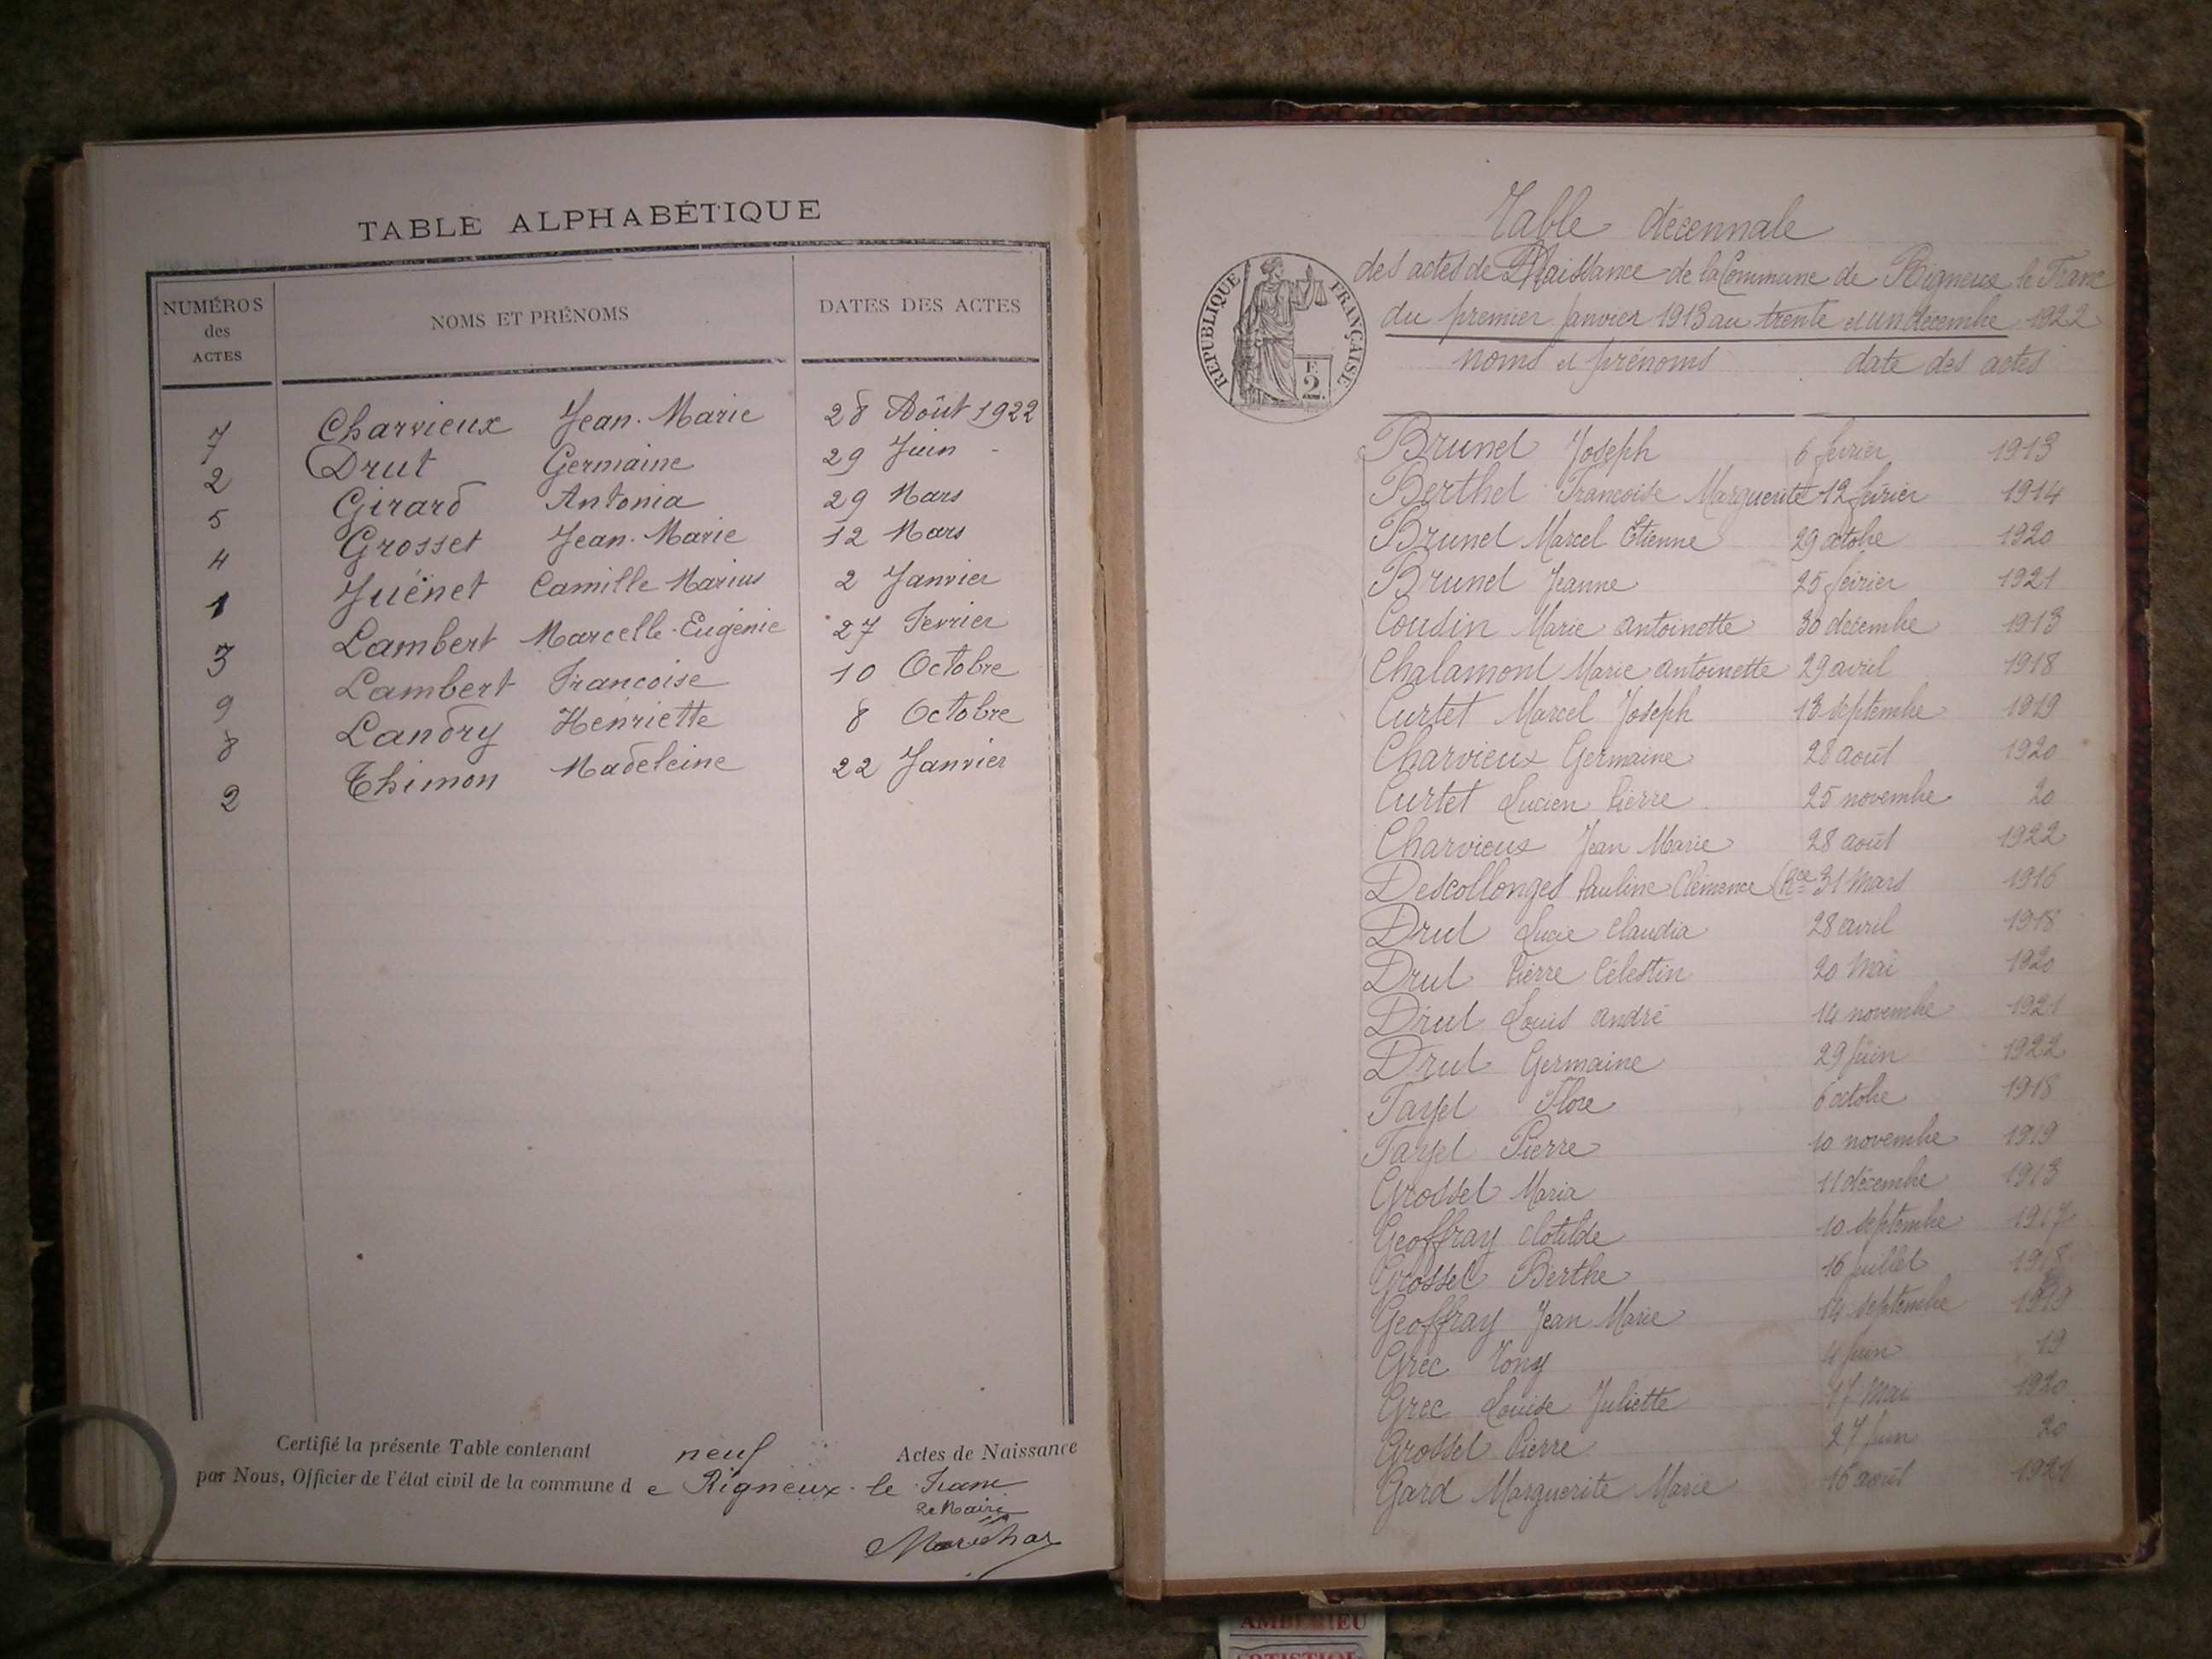 TABLE ALPHABÉTIQUE
NUMÉROS des ACTES NOMS ET PRÉNOMS DATES DES ACTES
7 Charvieux Jean-Marie 28 Août 1922
2 Drut Germaine 29 Juin -
5 Girard Antonia 29 Mars
4 Grosset Jean-Marie 12 Mars
1 Juënet Camille Marius 2 Janvier
3 Lambert Marcelle-Eugénie 27 Fevrier
9 Lambert Francoise 10 Octobre
8 Landry Henriette 8 Octobre
2 Thimon Madeleine 22 Janvier
Certifié la présente Table contenant neuf Actes de Naissance
par Nous, Officier de l'état civil de la commune d e Rigneux-le-Franc
Le Maire
Table décennale
des actes de Naissance de la Commune de Rigneux le Franc
du premier janvier 1913 au trente et un décembre 1922
RÉPUBLIQUE FRANÇAISE
2
noms et prénoms date des actes
Brunet Joseph 6 fevrier 1913
Berthet Francoise Marguerite 12 fevrier 1914
Brunet Marcel Etienne 29 octobre 1920
Brunet Jeanne 25 février 1921
Cousin Marie antoinette 30 decembre 1913
Chalamont Marie antoinette 29 avril 1918
Curtet Marcel Joseph 13 septembre 1919
Charvieux Germaine 28 août 1920
Curtet Lucien Pierre 25 novembre 20
Charvieux Jean Marie 28 août 1922
Descollonges Pauline Clémence 31 Mars 1916
Drut Lucie Claudia 28 avril 1918
Drut Pierre Célestin 20 Mai 1920
Drut Louis andré 14 novembre 1921
Drut Germaine 29 Juin 1922
Fayet Flore 6 octobre 1918
Fayet Pierre 10 novembre 1919
Grosset Maria 11 décembre 1913
Geoffray Clotilde 10 septembre 1917
Grosset Berthe 16 juillet 1918
Geoffray Jean Marie 14 septembre 1919
Grec Tony 4 juin 19
Grec Louise Juliette 17 Mai 1920
Grosset Pierre 27 Juin 20
Gard Marguerite Marie 16 août 1921
AMBERIEU